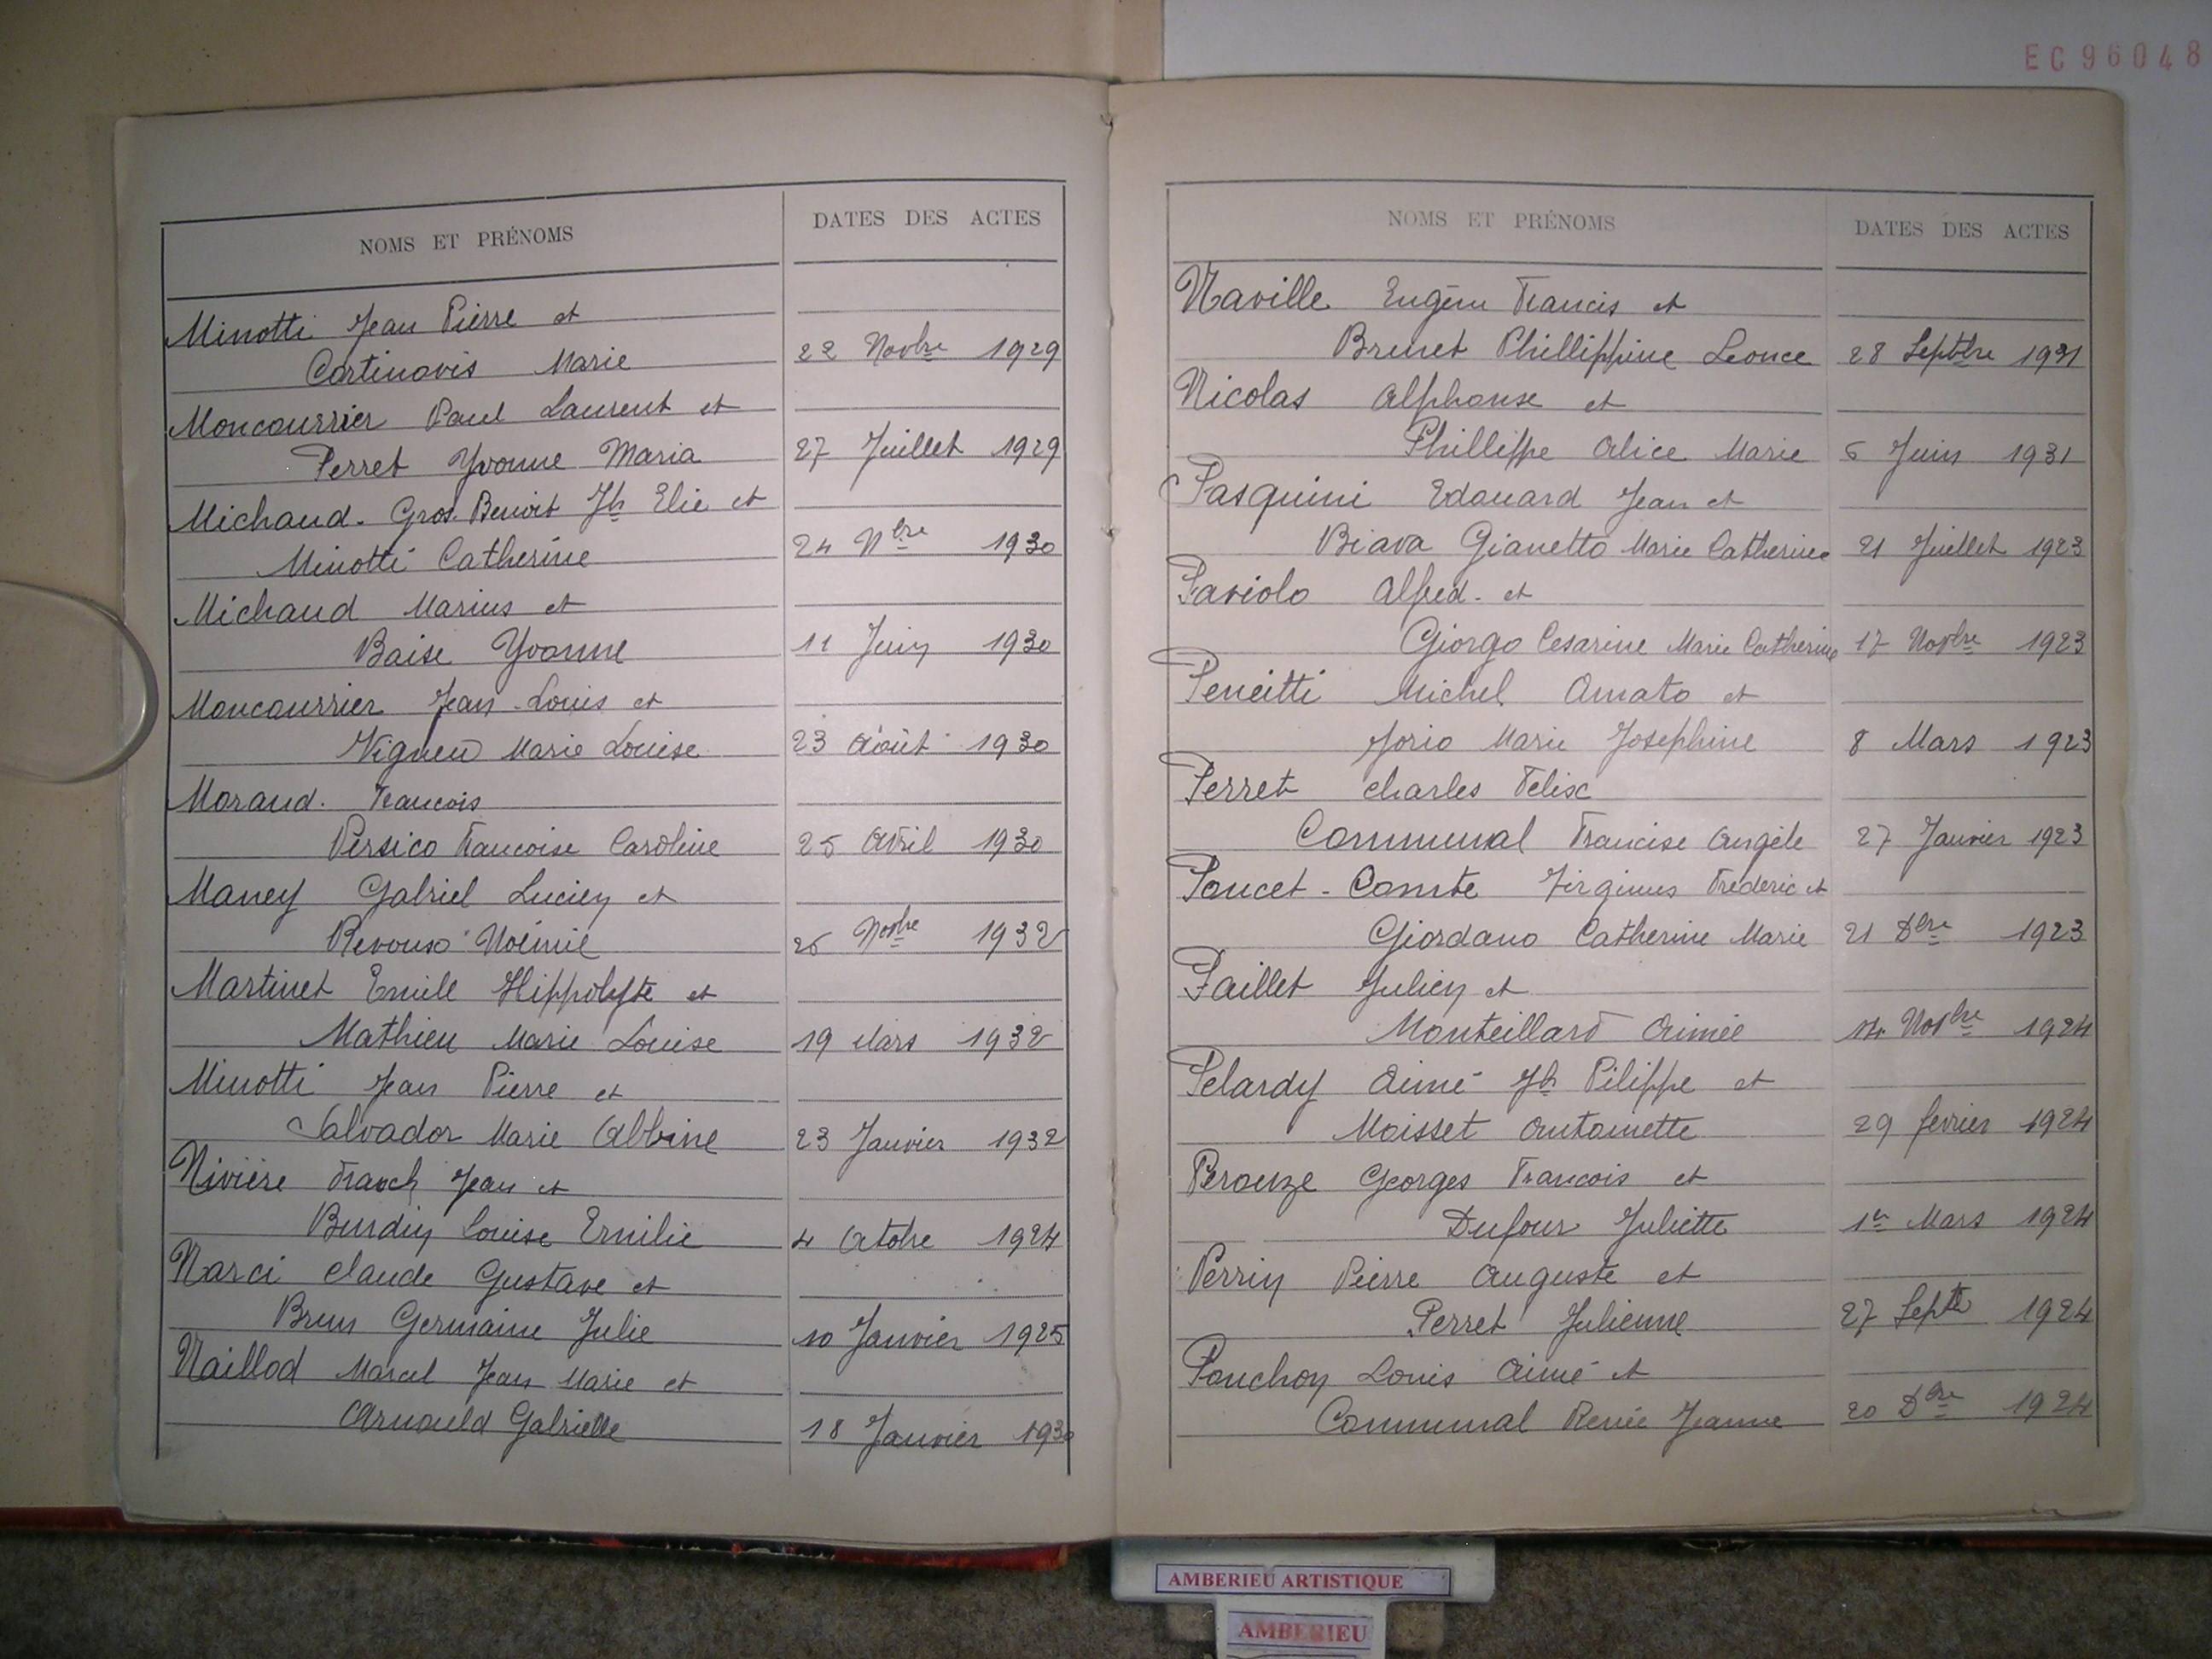 EC96048
NOMS ET PRÉNOMS
DATES DES ACTES
Minotti Jean Pierre et
Cortinovis Marie 22 Novbre 1929
Moncourrier Paul Laurent et
Perret Yvonne Maria 27 Juillet 1929
Michaud-Gros. Benoit Jh Elie et
Minotti Catherine 24 Nbre 1930
Michaud Marius et
Baise Yvonne 11 Juin 1930
Moncourrier Jean-Louis et
Marie Louise 23 Août 1930
Moraud. Francois
Persico Francoise Caroline 25 Avril 1930
Maney Gabriel Lucien et
Noémie Novbre 1932
Martinet Emile Hippolyte et
Mathieu Marie Louise 19 Mars 1932
Minotti Jean Pierre et
Salvador Marie Albine 23 Janvier 1932
Nivière Jean et
Burdin Louise Emilie 4 Octobre 1924
Narci Claude Gustave et
Brun Germaine Julie 10 Janvier 1925
Naillod Marcel Jean Marie et
Arnould Gabrielle 18 Janvier 1930
NOMS ET PRÉNOMS
DATES DES ACTES
Naville Eugène Francis et
Brunet Phillippine Leonce 28 Septbre 1931
Nicolas Alphonse et
Phillippe Alice Marie 6 Juin 1931
Pasquini Edouard Jean et
Biava Gianetto Marie Catherine 21 Juillet 1923
Paviolo Alfred. et
Giorgo Cesarine Marie Catherine 17 Novbre 1923
Peneitti Michel Amato et
Jorio Marie Josephine 8 Mars 1923
Perret Charles Felix
Communal Francise Angèle 27 Janvier 1923
Poncet-Comte Virginus Frederic et
Giordano Catherine Marie 21 Dbre 1923
Paillet Julien et
Monteillard Aimée 14 Novbre 1924
Pelardy Aimé Jh Pilippe et
Moisset Antoinette 29 fevrier 1924
Perouze Georges Francois et
Dufour Juliette 1er Mars 1924
Perrin Pierre Auguste et
Perret Julienne 27 Septb 1924
Ponchon Louis Aimé et
Communal Renée Jeanne 20 Dbre 1924
AMBERIEU ARTISTIQUE
AMBERIEU